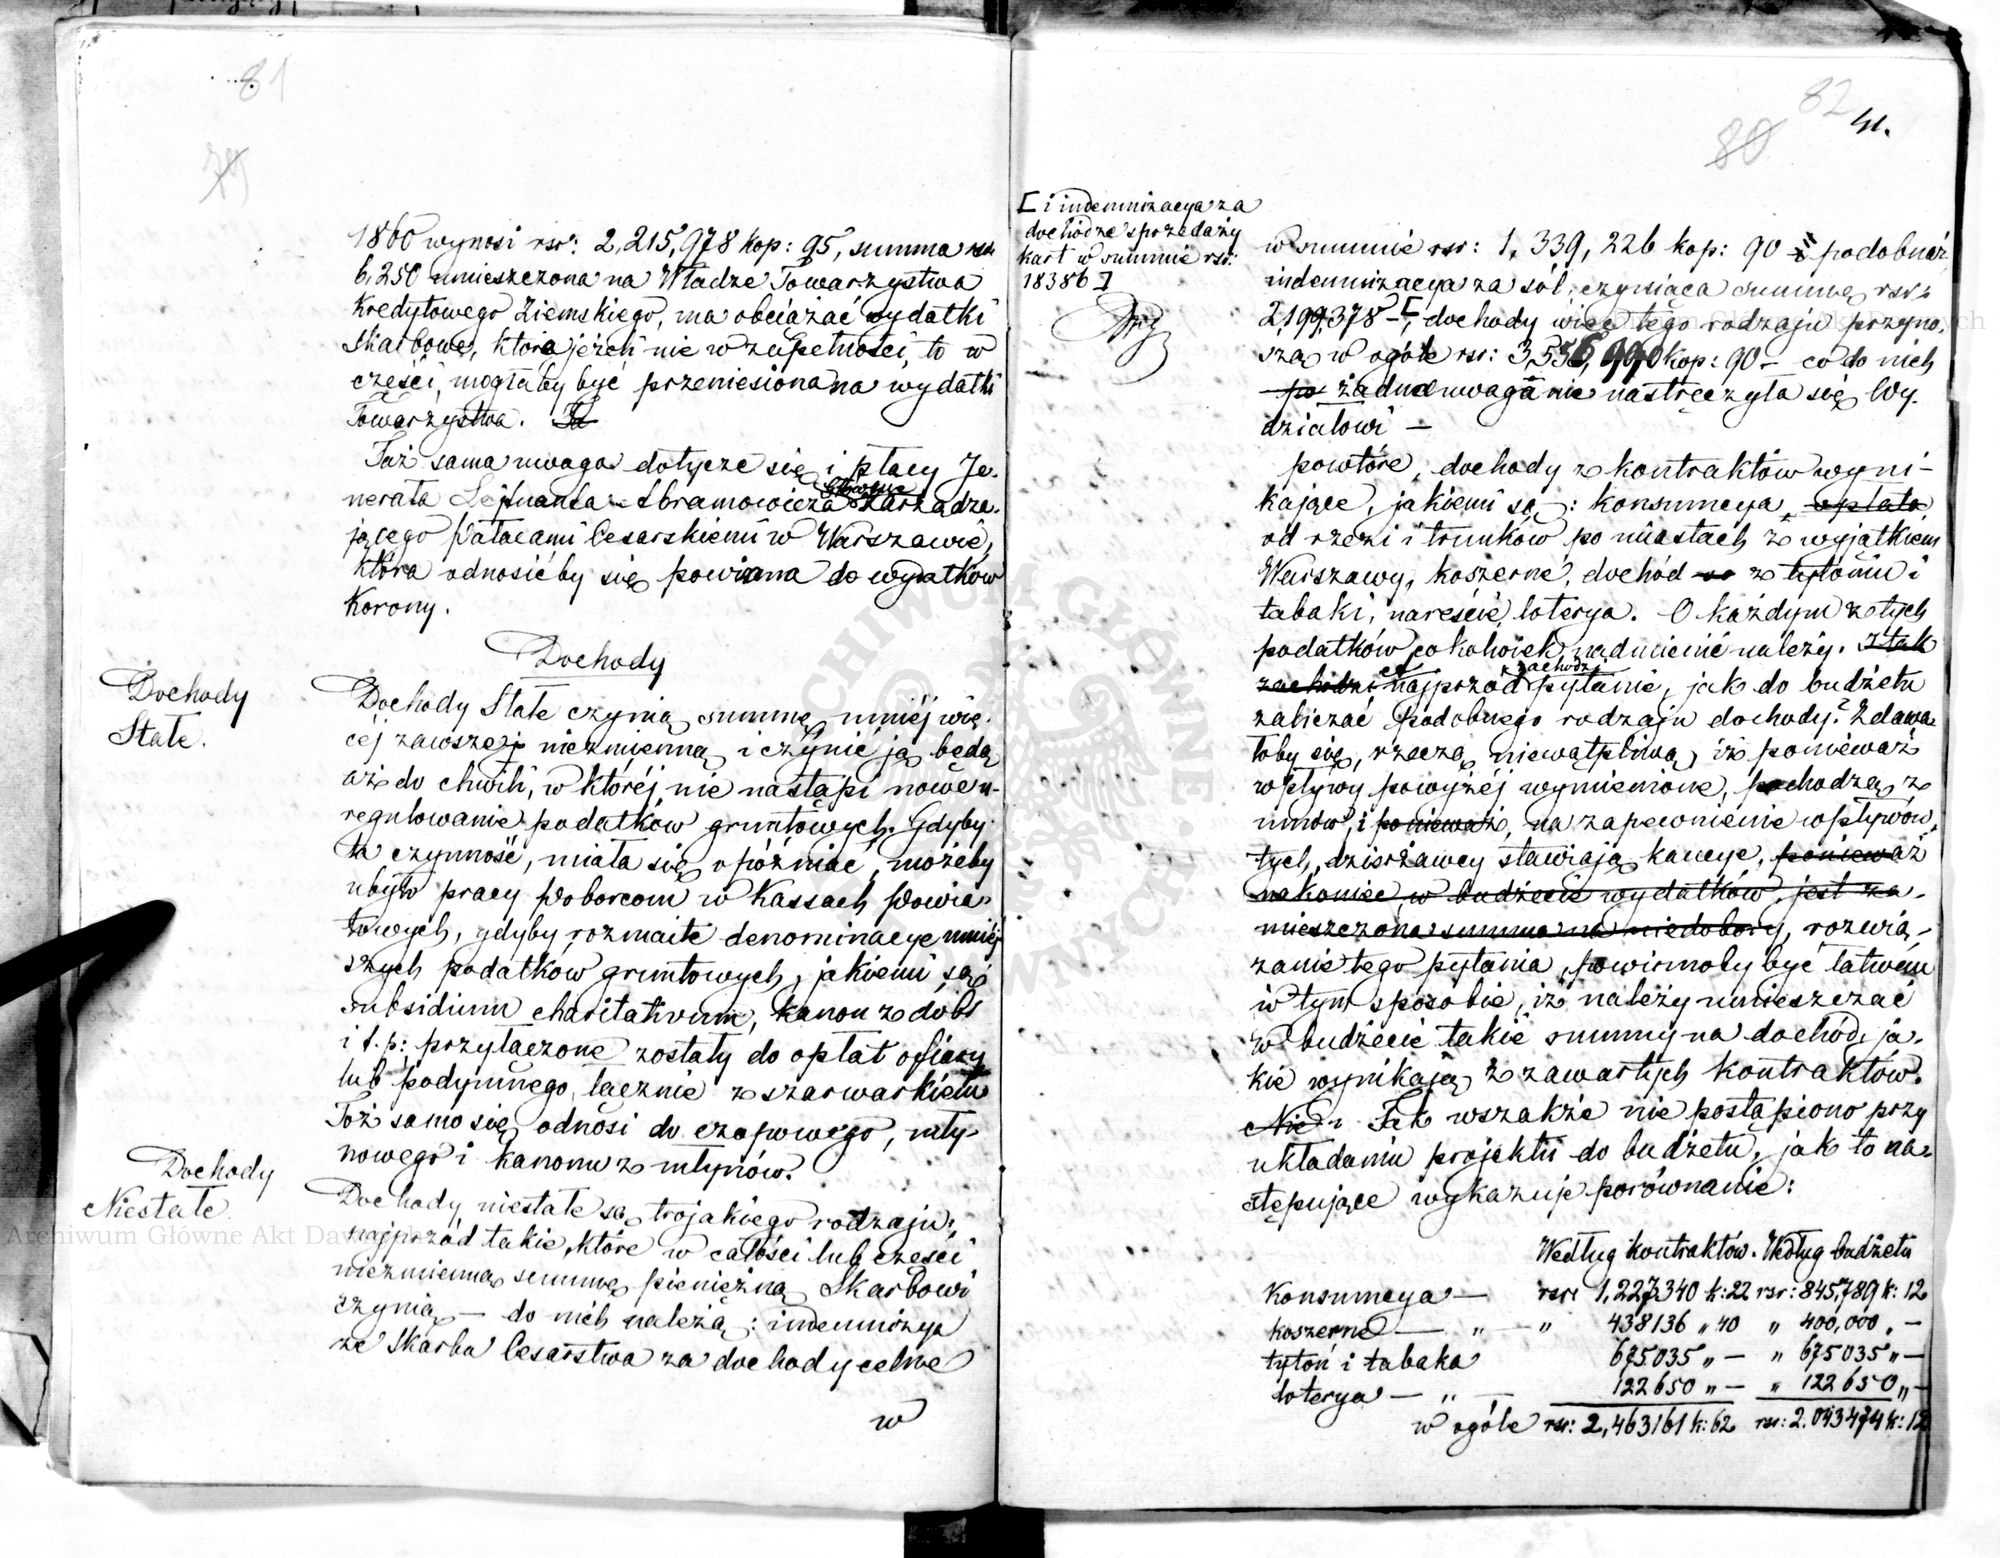 81
79
1860 wynosi rsr: 2,215,978 kop: 95, summa rsr
6,250 umieszczona na Władze Towarzystwa
Kredytowego Ziemskiego, ma obciążać wydatki
Skarbowe, która jeżeli nie w zupełności, to w
części, mogłaby być przeniesiona na wydatki
Towarzystwa. Ta
Taż sama uwaga dotycze się i płacy Je-
nerała Lejtnanta Abramowicza Głównie Zarządza-
jącego Pałacami Cesarskiemi w Warszawie,
która odnosićby się powinna do wydatków
Korony.
Dochody
Dochody
Stałe.
Dochody Stałe czynią summę mniéj wię-
céj zawsze niezmienną i czynić ją będą
aż do chwili, w któréj nie nastąpi nowe u-
regulowanie podatków gruntowych. Gdyby
ta czynność, miała się opóźniać, możeby
ubyło pracy Poborcom w Kassach Powia-
towych, gdyby rozmaite denominacye mniéj-
szych podatków gruntowych, jakiemi są:
subsidium charitativum, kanon z dóbr
i t. p: przyłączone zostały do opłat ofiary
lub podymnego, łącznie z szarwarkiem
Toż samo się odnosi do czopowego, mły-
nowego i kanonu z młynów.
Dochody
Niestałe.
Dochody niestałe są trojakiego rodzaju:
najprzód takie, które w całości lub części
niezmienną summę pieniężną Skarbowi
czynią — do nich należą: indemnizya
ze Skarbu Cesarstwa za dochody celne
w
82
80
41.
[ i indemnizacya za
dochód ze sprzedaży
kart w summie rsr:
18386 ]
w summie rsr: 1,339,226 kop: 90 podobnaż
indemnizacya za sól, czyniąca summę rsr:
2,199,378 — [, dochody więc tego rodzaju przyno-
szą w ogóle rsr: 3,556,990 kop: 90 — co do nich
po żadna uwaga nie nastręczyła się Wy-
działowi —
powtóre, dochody z kontraktów wyni-
kające, jakiemi są: konsumcya, opłata
od rzezi i trunków po miastach z wyjątkiem
Warszawy, koszerne, dochód z tytoniu i
tabaki, nareście loterya. O każdym z tych
podatków cokolwiek nadmienić należy. I tak
zachodzi najprzód zachodzi pytanie, jak do budżetu
zaliczać podobnego rodzaju dochody? Zdawa-
łoby się, rzeczą niewątpliwą, iż ponieważ
wpływy powyżéj wymienione, pochodzą z
umów, i ponieważ, na zapewnienie wpływów
tych, dzierżawcy stawiają kaucye, ponieważ
nakoniec w budżecie wydatków, jest za-
mieszczona summa na niedobory, rozwią-
zanie tego pytania, powinnoby być łatwém
w tym sposobie, iż należy umieszczać
w budżecie takie summy na dochód, ja-
kie wynikają z zawartych kontraktów.
Nie Tak wszakże nie postąpiono przy
układaniu projektu do budżetu, jak to na-
stępujące wykazuje porównanie:
Według kontraktów. Według budżetu
Konsumcya — rsr: 1,227,340 k: 22 rsr: 845,789 k: 12
koszerne — „ — „ 438136 „ 40 „ 400,000 „ —
tytoń i tabaka 675.035 „ — „ 675035 „ —
loterya — „ — 122650 „ — „ 122650 „ —
w ogóle rsr: 2,463161 k: 62 rsr: 2.043474 k: 12
Archiwum Główne Akt Dawnych
ARCHIWUM GŁÓWNE AKT DAWNYCH